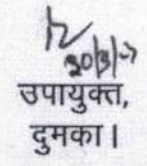 30/3/
उपायुक्त,
दुमका।